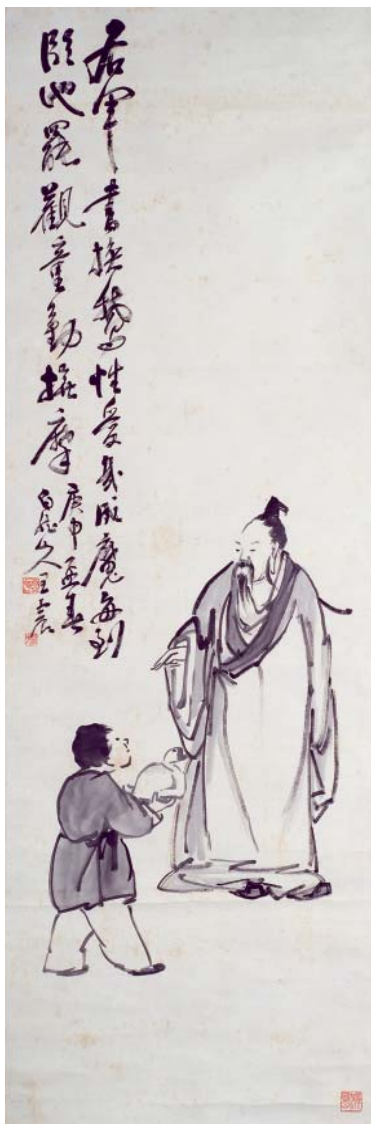 右軍書換鵝性愛幾成魔每到
臨池罷觀童勤撫摩
庚申孟春
白龍山人王震